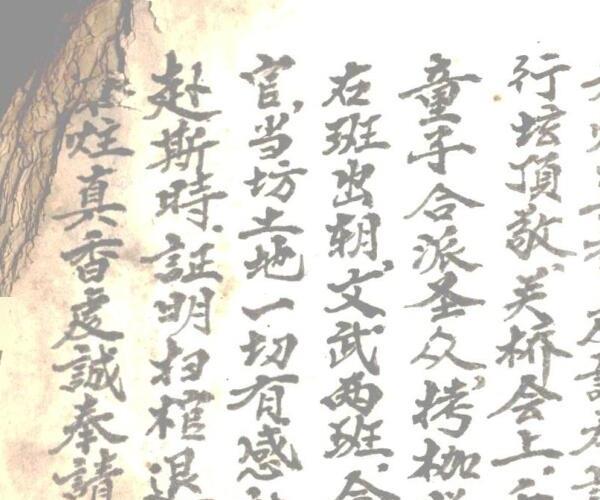 行坛頂敬、关桥会上、
童子合派圣众、拷枷
在班出朝、文武两班、合
官、当坊土地一切有感
赴斯時、証明扫棺退
炷真香虔誠奉請